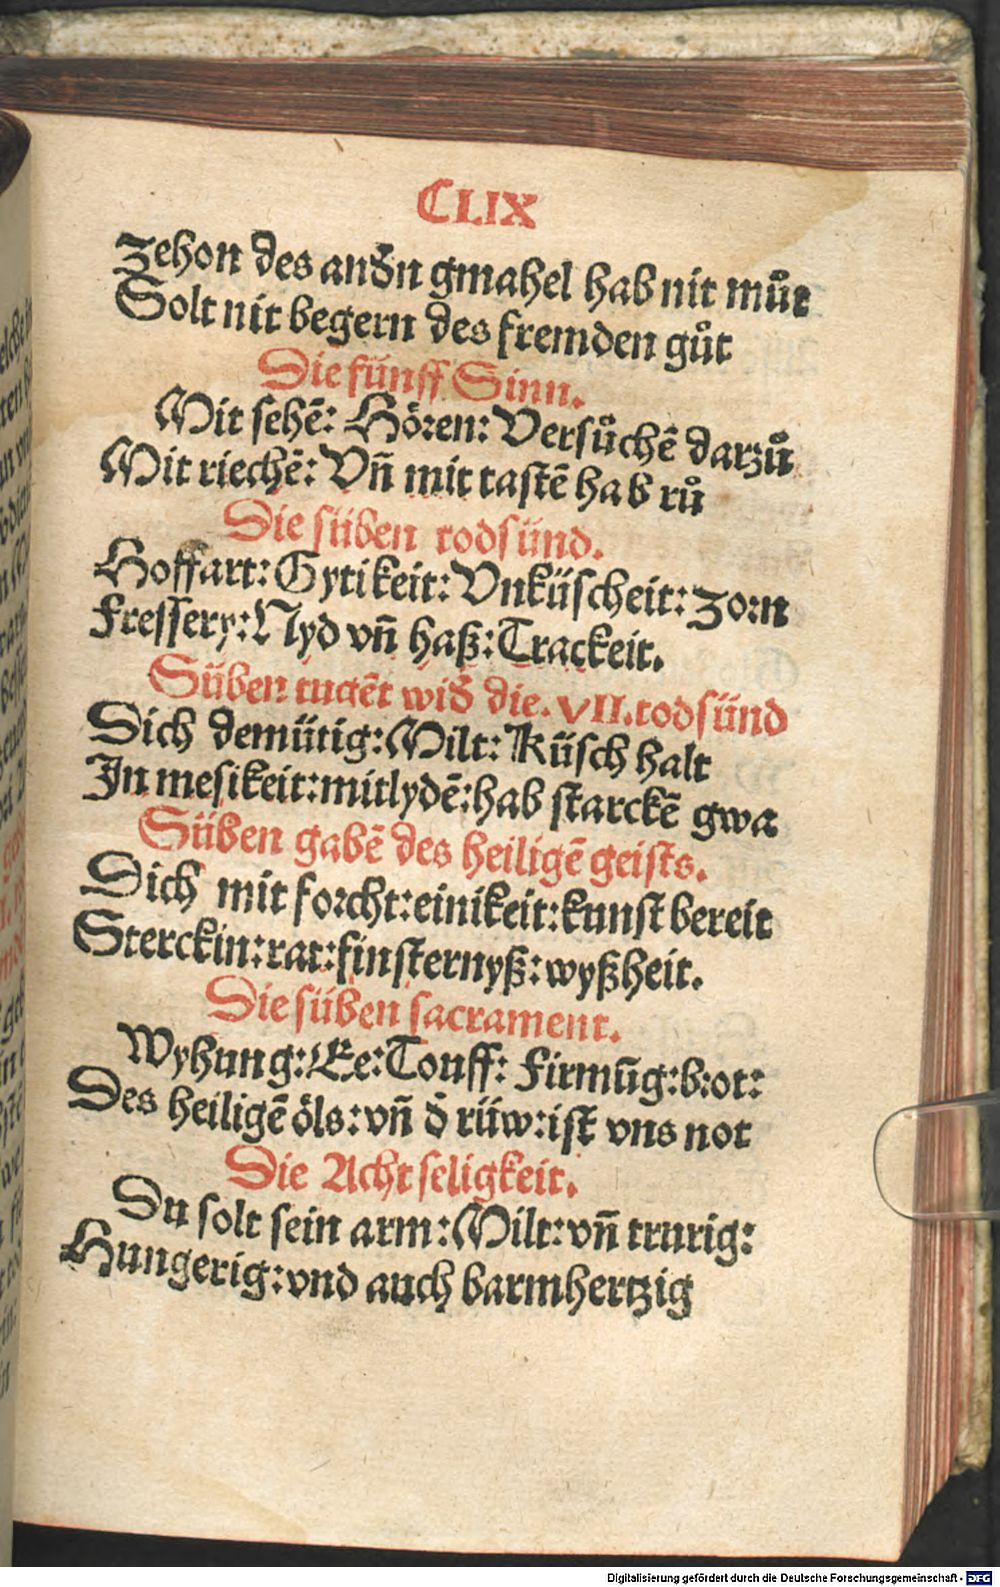 CLIX
zehon des andn̄ gmahel hab nit můt
Solt nit begern des fremden gůt
Die fünff Sinn.
Mit sehē: Hören: Versůchē darzů
Mit riechē: Vn̄ mit tastē hab rů
Die süben todsünd.
Hoffart: Gytikeit: Vnküscheit: zorn
Fressery: Nyd vn̄ haß: Trackeit.
Süben tugēt wid̄ die. VII. todsünd
Dich demütig: Milt: Küsch halt
In mesikeit: mitlydē: hab starckē gwa
Süben gabē des heiligē geists.
Dich mit forcht: einikeit: kunst bereit
Sterckin: rat: finsternyß: wyßheit.
Die süben sacrament.
Wyhung: Ee: Touff: Firmūg: brot:
Des heiligē öls: vn̄ d̄ rüw: ist vns not
Die Acht seligkeit.
Du solt sein arm: Milt: vn̄ trurig:
Hungerig: vnd auch barmhertzig
Digitalisierung gefördert durch die Deutsche Forschungsgemeinschaft - DFG